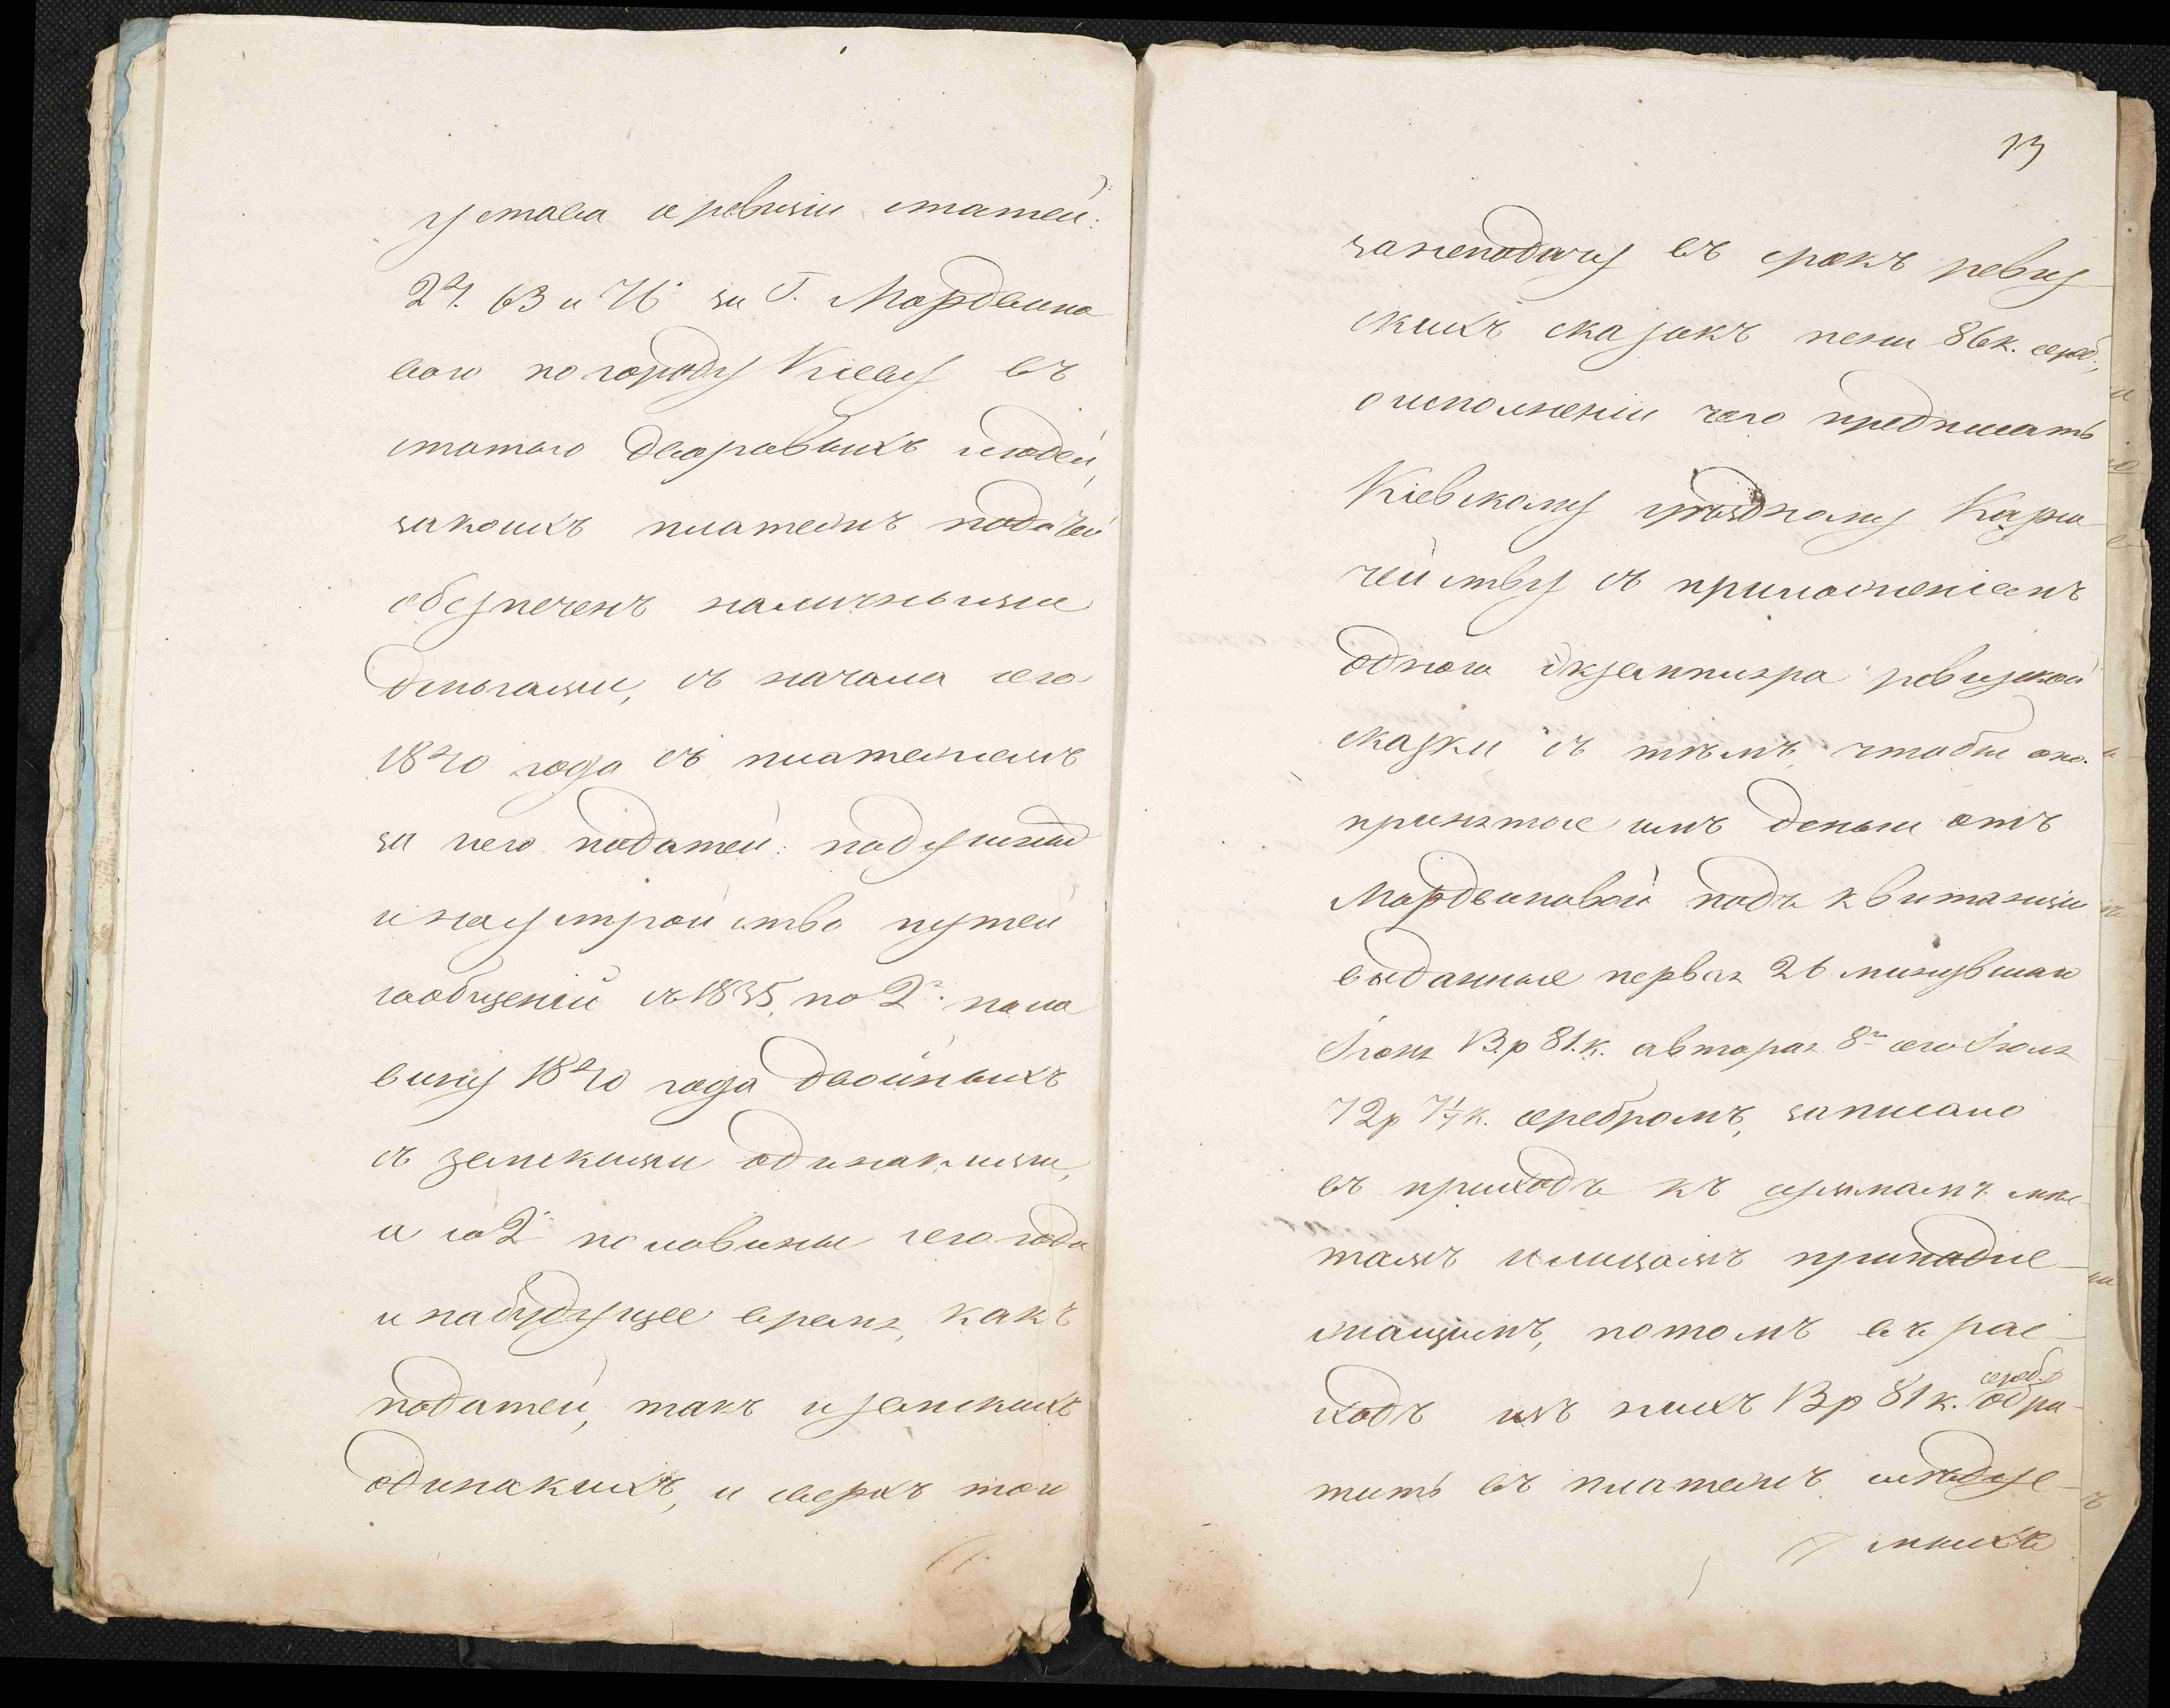 устава о ревизіи статей:
24. 63 и 76 за Г. Мордвино
вою по городу Кіеву въ
статью дворовыхъ людей,
за коихъ платежъ податей
обезпеченъ наличными
деньгами, съ начала сего
1840 года съ платежемъ
за него податей: подушной
и на устройство путей
сообщеній съ 1835, по 2ю поло
вину 1840 года двойныхъ
съ земскими одинакими,
и со 2й половины сего года
и на будущее время, какъ
податей, такъ и земскихъ
одинакихъ, и сверхъ того
13
за неподачу въ срокъ ревиз
скихъ сказокъ пени 86 к. сереб.,
о исполненіи чего предписать
Кіевскому уѣздному Казна
чейству съ приложеніемъ
одного экземпляра ревизской
сказки съ тѣмъ, чтобы оно
принятые имъ деньги отъ
Мордвиновой подъ квитанціи
выданные первая 26 минувшаго
Іюня 13 р 81. к. а вторая 8го сего Іюля
12 р 7 1/7 к. серебромъ, записало
въ приходъ къ суммамъ мѣс
тамъ и лицамъ принадле
жащимъ, потомъ въ рас
ходъ изъ нихъ 13 р 81 к. сереб. обра
тить въ платежъ слѣдуе
мыхъ